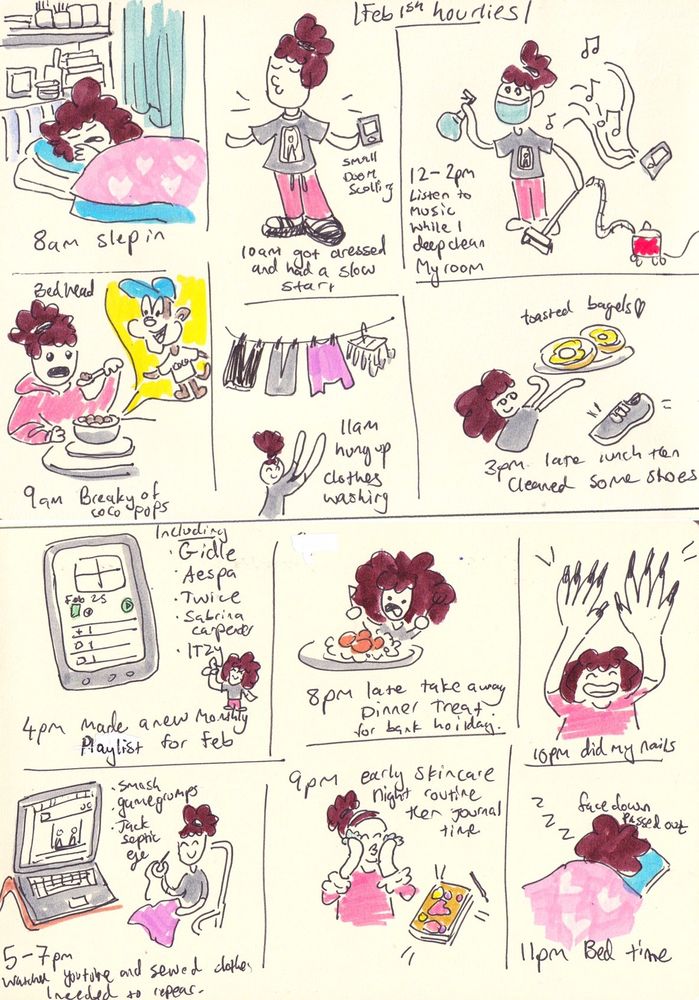 Feb 1st hourlies
8am sleep in
small
Doom
Scolling
10am got dressed
and had a slow
start
12-2pm
Listen to
Music
while I
deep clean
My room
Bed head
9am Breaky of
coco pops
11am
hung up
clothes
washing
toasted bagels
3pm late lunch then
cleaned some shoes
Including
· Gidle
· Aespa
· Twice
· Sabrina
carpenter
· ITZY
Feb 25
4pm made a new Monthly
Playlist for Feb
8pm late take away
Dinner Treat
for bank holiday.
10pm did my nails
· Smosh
· gamegrumps
· Jack
septic
eye
5-7pm
Watched youtube and sewed clothes
I needed to repear.
9pm early skincare
night routine
then journal
time
Z
Z
Z
face down
Passed out
11pm Bed time